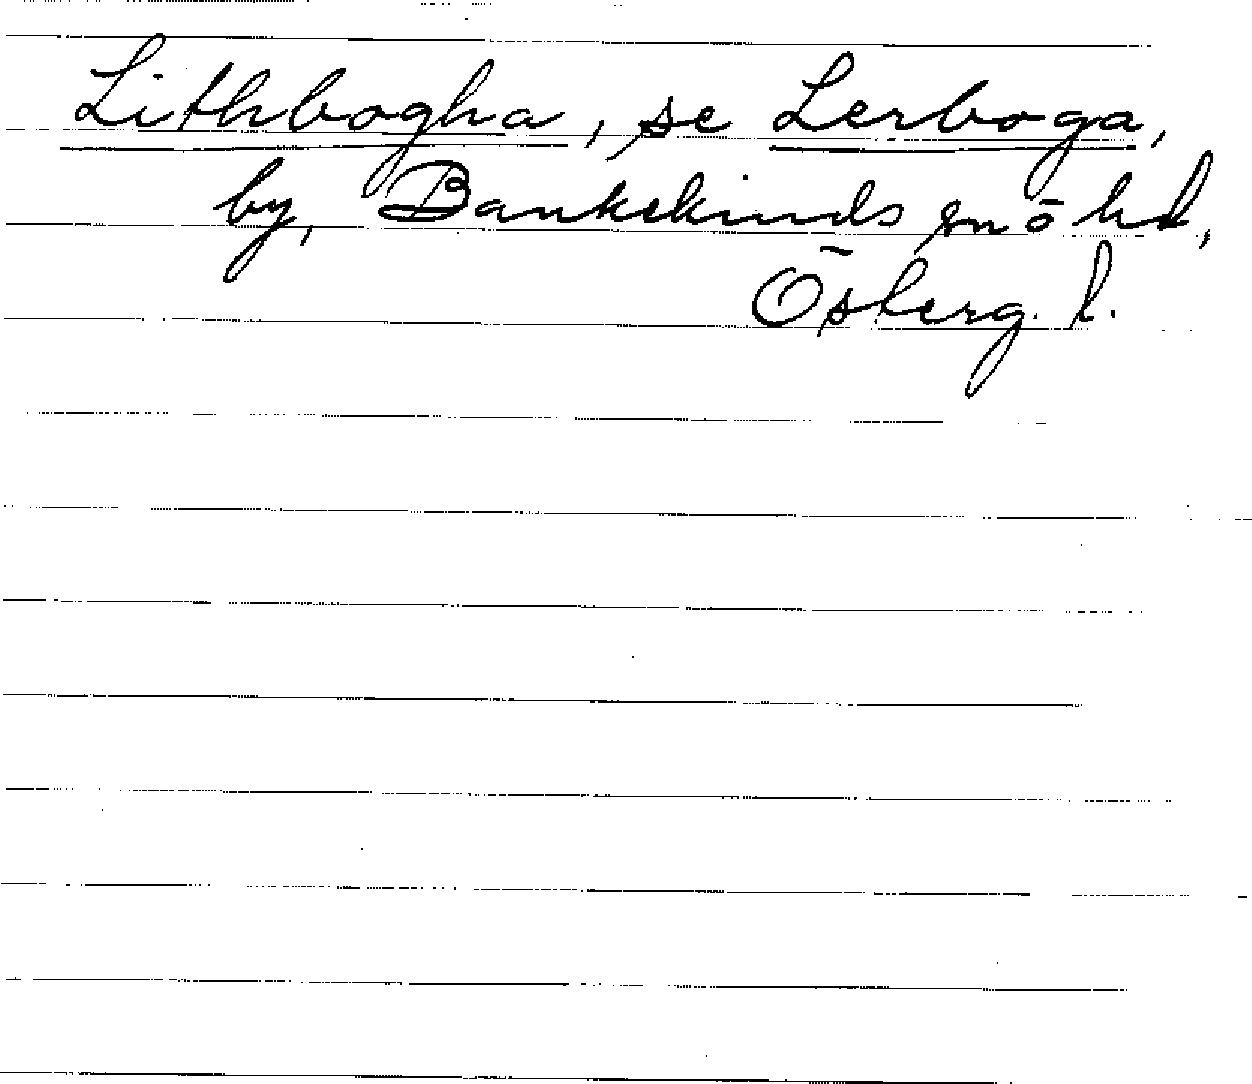 Lithbogha, se Lerboga,
by, Bankekinds sn o hd,
Österg. l.